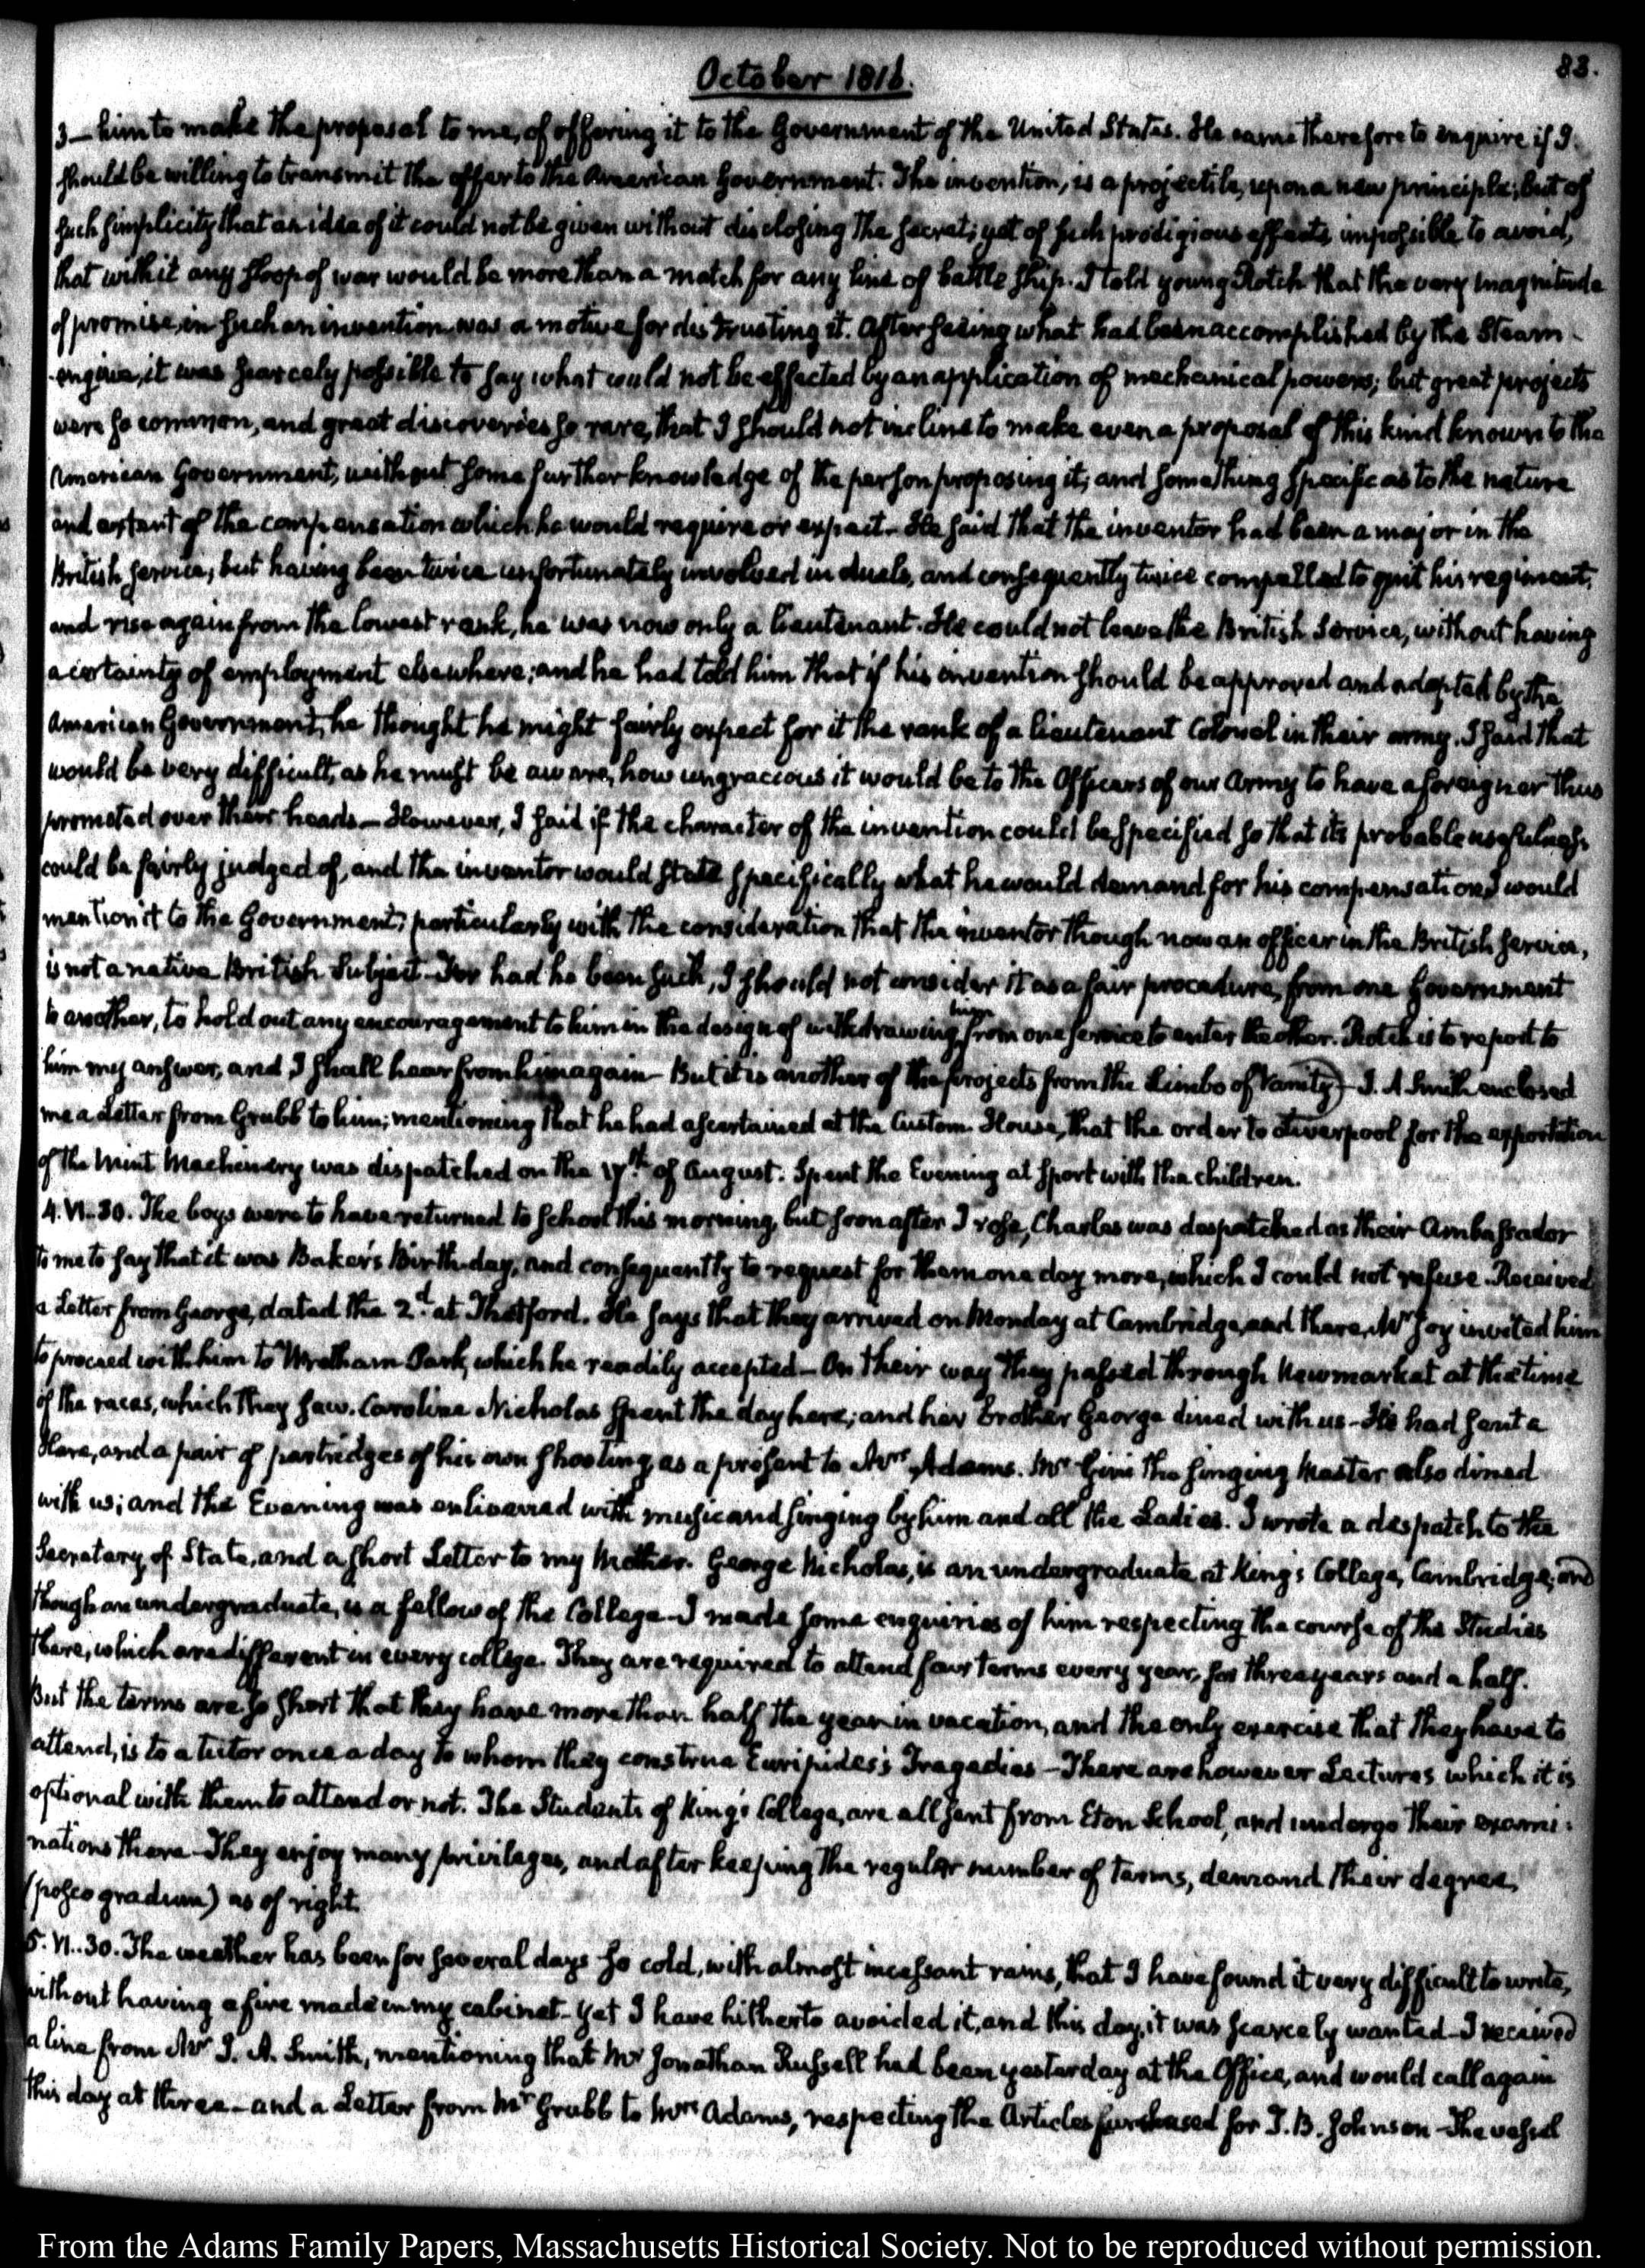 October 1816.
83.
3— him to make the proposal to me, of offering it to the Government of the United States. He came therefore to enquire if I
should be willing to transmit the offer to the American Government. The invention, is a projectile, upon a new principle; but of
such simplicity that an idea of it could not be given without disclosing the secret; yet of such prodigious effects, impossible to avoid,
that with it any sloop of war would be more than a match for any line of battle ship. I told young Rotch that the very magnitude
of promise, in such an invention was a motive for distrusting it. After seeing what had been accomplished by the Steam-
-engine, it was scarcely possible to say what could not be effected by an application of mechanical powers; but great projects
were so common, and great discoveries so rare, that I should not incline to make even a proposal of this kind known to the
American Government, without some further knowledge of the person proposing it; and something specific as to the nature
and extent of the compensation which he would require or expect— He said that the inventor had been a major in the
British service; but having been twice unfortunately involved in duels, and consequently twice compelled to quit his regiment,
and rise again from the lowest rank, he was now only a lieutenant. He could not leave the British Service, without having
a certainty of employment elsewhere; and he had told him that if his invention should be approved and adopted by the
American Government, he thought he might fairly expect for it the rank of a lieutenant Colonel in their army. I said that
would be very difficult, as he must be aware, how ungracious it would be to the Officers of our Army to have a foreigner thus
promoted over their heads— However, I said if the character of the invention could be specified so that its probable usefulness
could be fairly judged of, and the inventor would state specifically what he would demand for his compensation I would
mention it to the Government; particularly with the consideration that the inventor though now an officer in the British service,
is not a native British Subject— For had he been such, I should not consider it as a fair procedure, from one Government
to another, to hold out any encouragement to him in the design of withdrawing him from one service to enter the other. Rotch is to report to
him my answer, and I shall hear from him again— But it is another of the projects from the Limbo of Vanity— J. A Smith enclosed
me a Letter from Grubb to him; mentioning that he had ascertained at the Custom House, that the order to Liverpool for the exportation
of the Mint Machinery was dispatched on the 17th. of August. Spent the Evening at sport with the children.
4. VI..30. The boys were to have returned to School this morning, but soon after I rose, Charles was despatched as their Ambassador
to me to say that it was Baker's Birth-day, and consequently to request for them one day more, which I could not refuse. Received
a Letter from George, dated the 2d. at Thetford. He says that they arrived on Monday at Cambridge, and there, Mr Joy invited him
to proceed with him to Wretham Park, which he readily accepted— On their way they passed through Newmarket at the time
of the races, which they saw. Caroline Nicholas spent the day here; and her Brother George dined with us— He had sent a
Hare, and a pair of partridges of his own shooting, as a present to Mrs. Adams. Mr Gini the singing Master also dined
with us; and the Evening was enlivened with music and singing by him and all the Ladies. I wrote a despatch to the
Secretary of State, and a short Letter to my Mother. George Nicholas, is an undergraduate at King's College, Cambridge; and
though an undergraduate, is a fellow of the College— I made some enquiries of him respecting the course of the Studies
there, which are different in every college. They are required to attend four terms every year, for three years and a half.
But the terms are so short that they have more than half the year in vacation, and the only exercise that they have to
attend, is to a tutor once a day to whom they construe Euripides's Tragedies— There are however Lectures which it is
optional with them to attend or not. The Students of King's College, are all sent from Eton School, and undergo their exami-
nations there— They enjoy many privileges, and after keeping the regular number of terms, demand their degree,
(posco gradum) as of right.
5. VI..30. The weather has been for several days so cold, with almost incessant rains, that I have found it very difficult to write,
without having a fire made in my cabinet— Yet I have hitherto avoided it, and this day, it was scarcely wanted— I received
a line from Mr J. A. Smith, mentioning that Mr Jonathan Russell had been yesterday at the Office, and would call again
this day at three— and a Letter from Mr Grubb to Mrs Adams, respecting the Articles purchased for T. B. Johnson— The vessel
From the Adams Family Papers, Massachusetts Historical Society. Not to be reproduced without permission.